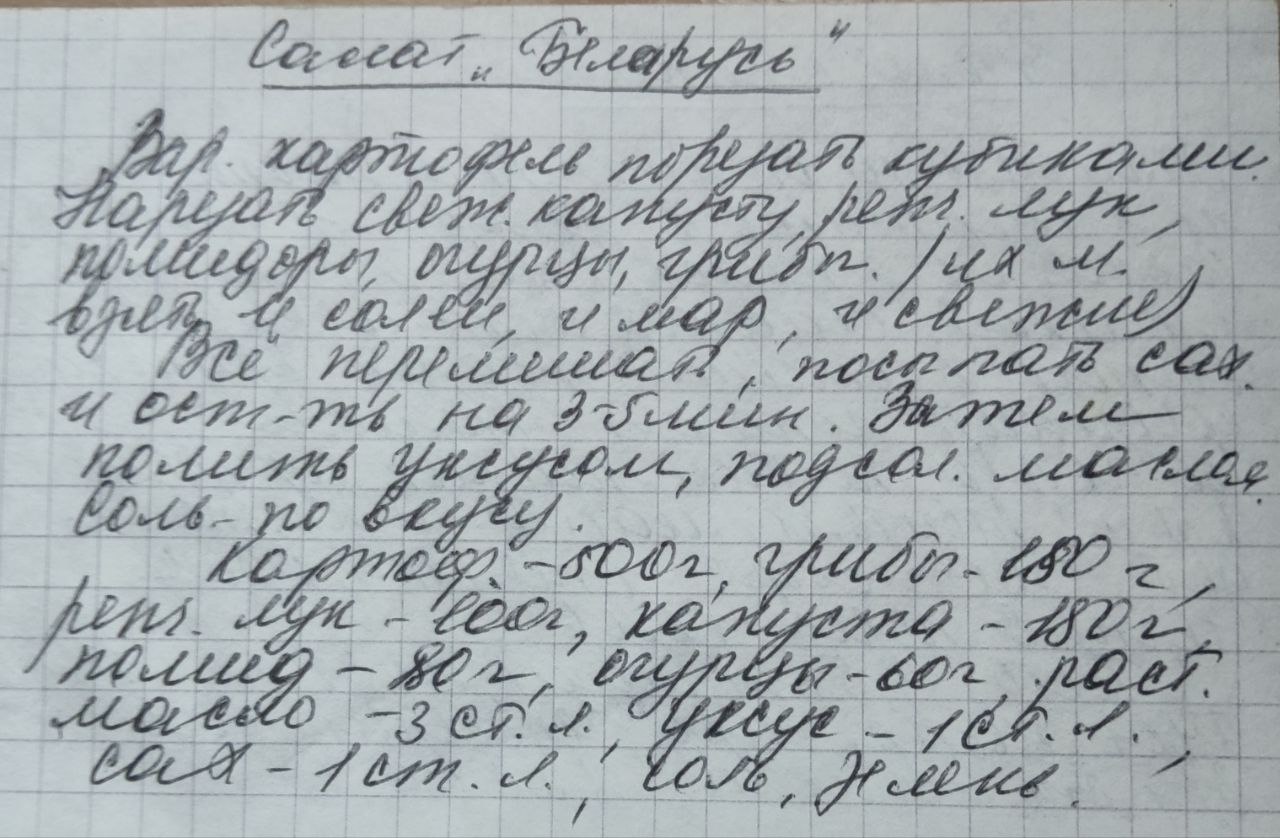 Салат „Беларусь"
Вар. картофель порезать кубиками.
Нарезать свеж. капусту, репч. лук,
помидоры, огурцы, грибы. (их м.
взять и солен, и мар, и свежие)
Всё перемешать, посыпать сах.
и ост-ть на 3-5 мин. Затем
полить уксусом, подсол. маслом.
Соль - по вкусу.
Картоф. - 500 г, грибы - 180 г,
репч. лук - 100 г, капуста - 180 г,
помид - 80 г, огурцы - 60 г, раст.
масло - 3 ст. л., уксус - 1 ст. л.,
сах - 1 ст. л., соль, зелень.